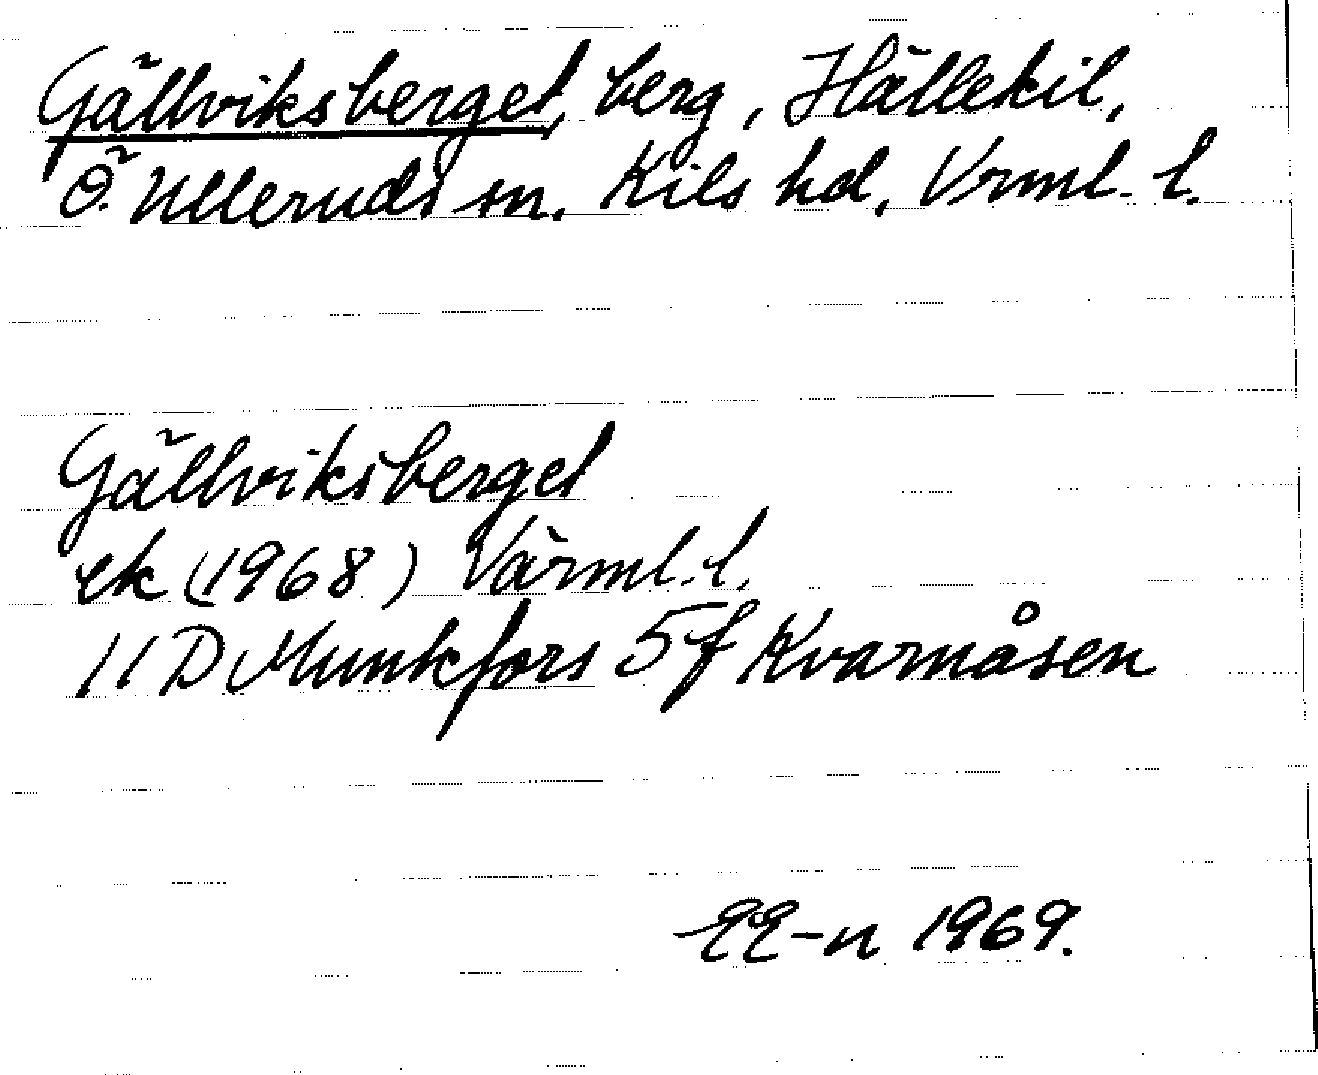 Gällviksberget, berg, Hällekil,
Ö. Ulleruds sn. Kils hd, Vrml. l.
Gällviksberget
ek (1968) Värml. l.
11 D Munkfors 5 f Kvarnåsen
EE-n 1969.